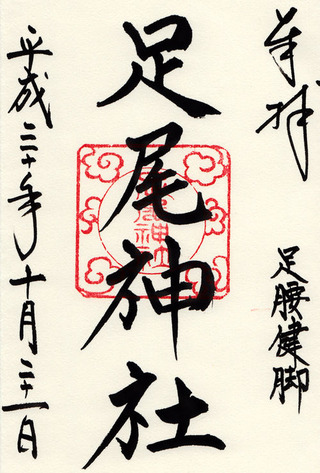 奉拝
足腰健脚
足尾神社
平成三十年十月二十一日